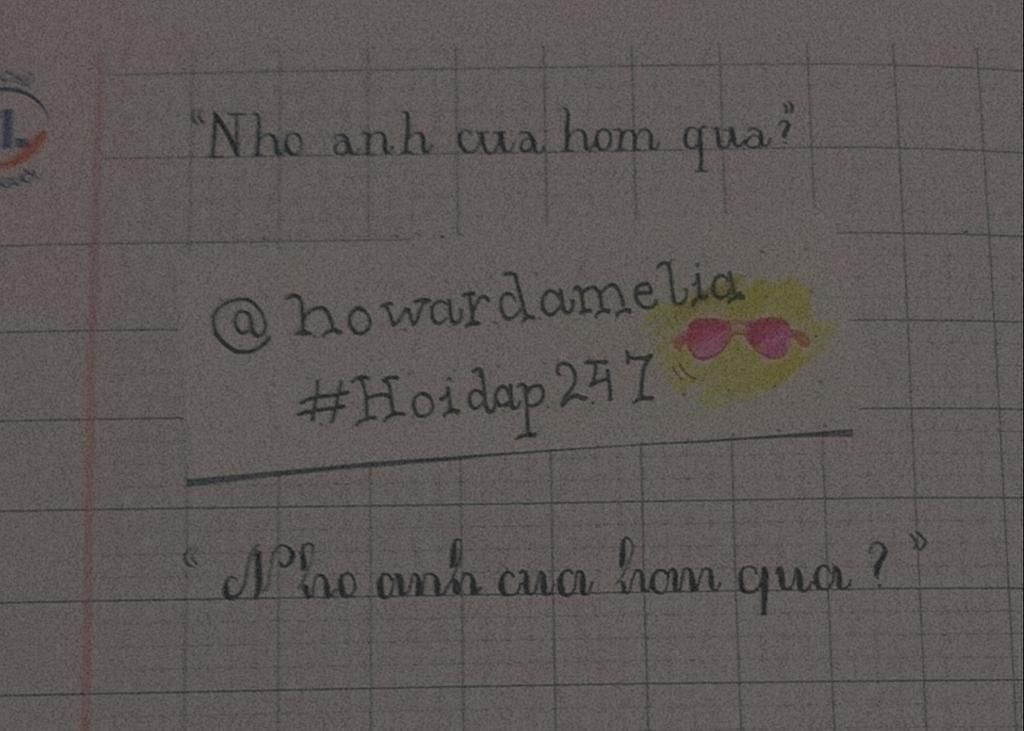 "Nho anh cua hom qua?"
@howardamelia
#Hoidap247
"Nho anh cua hom qua?"